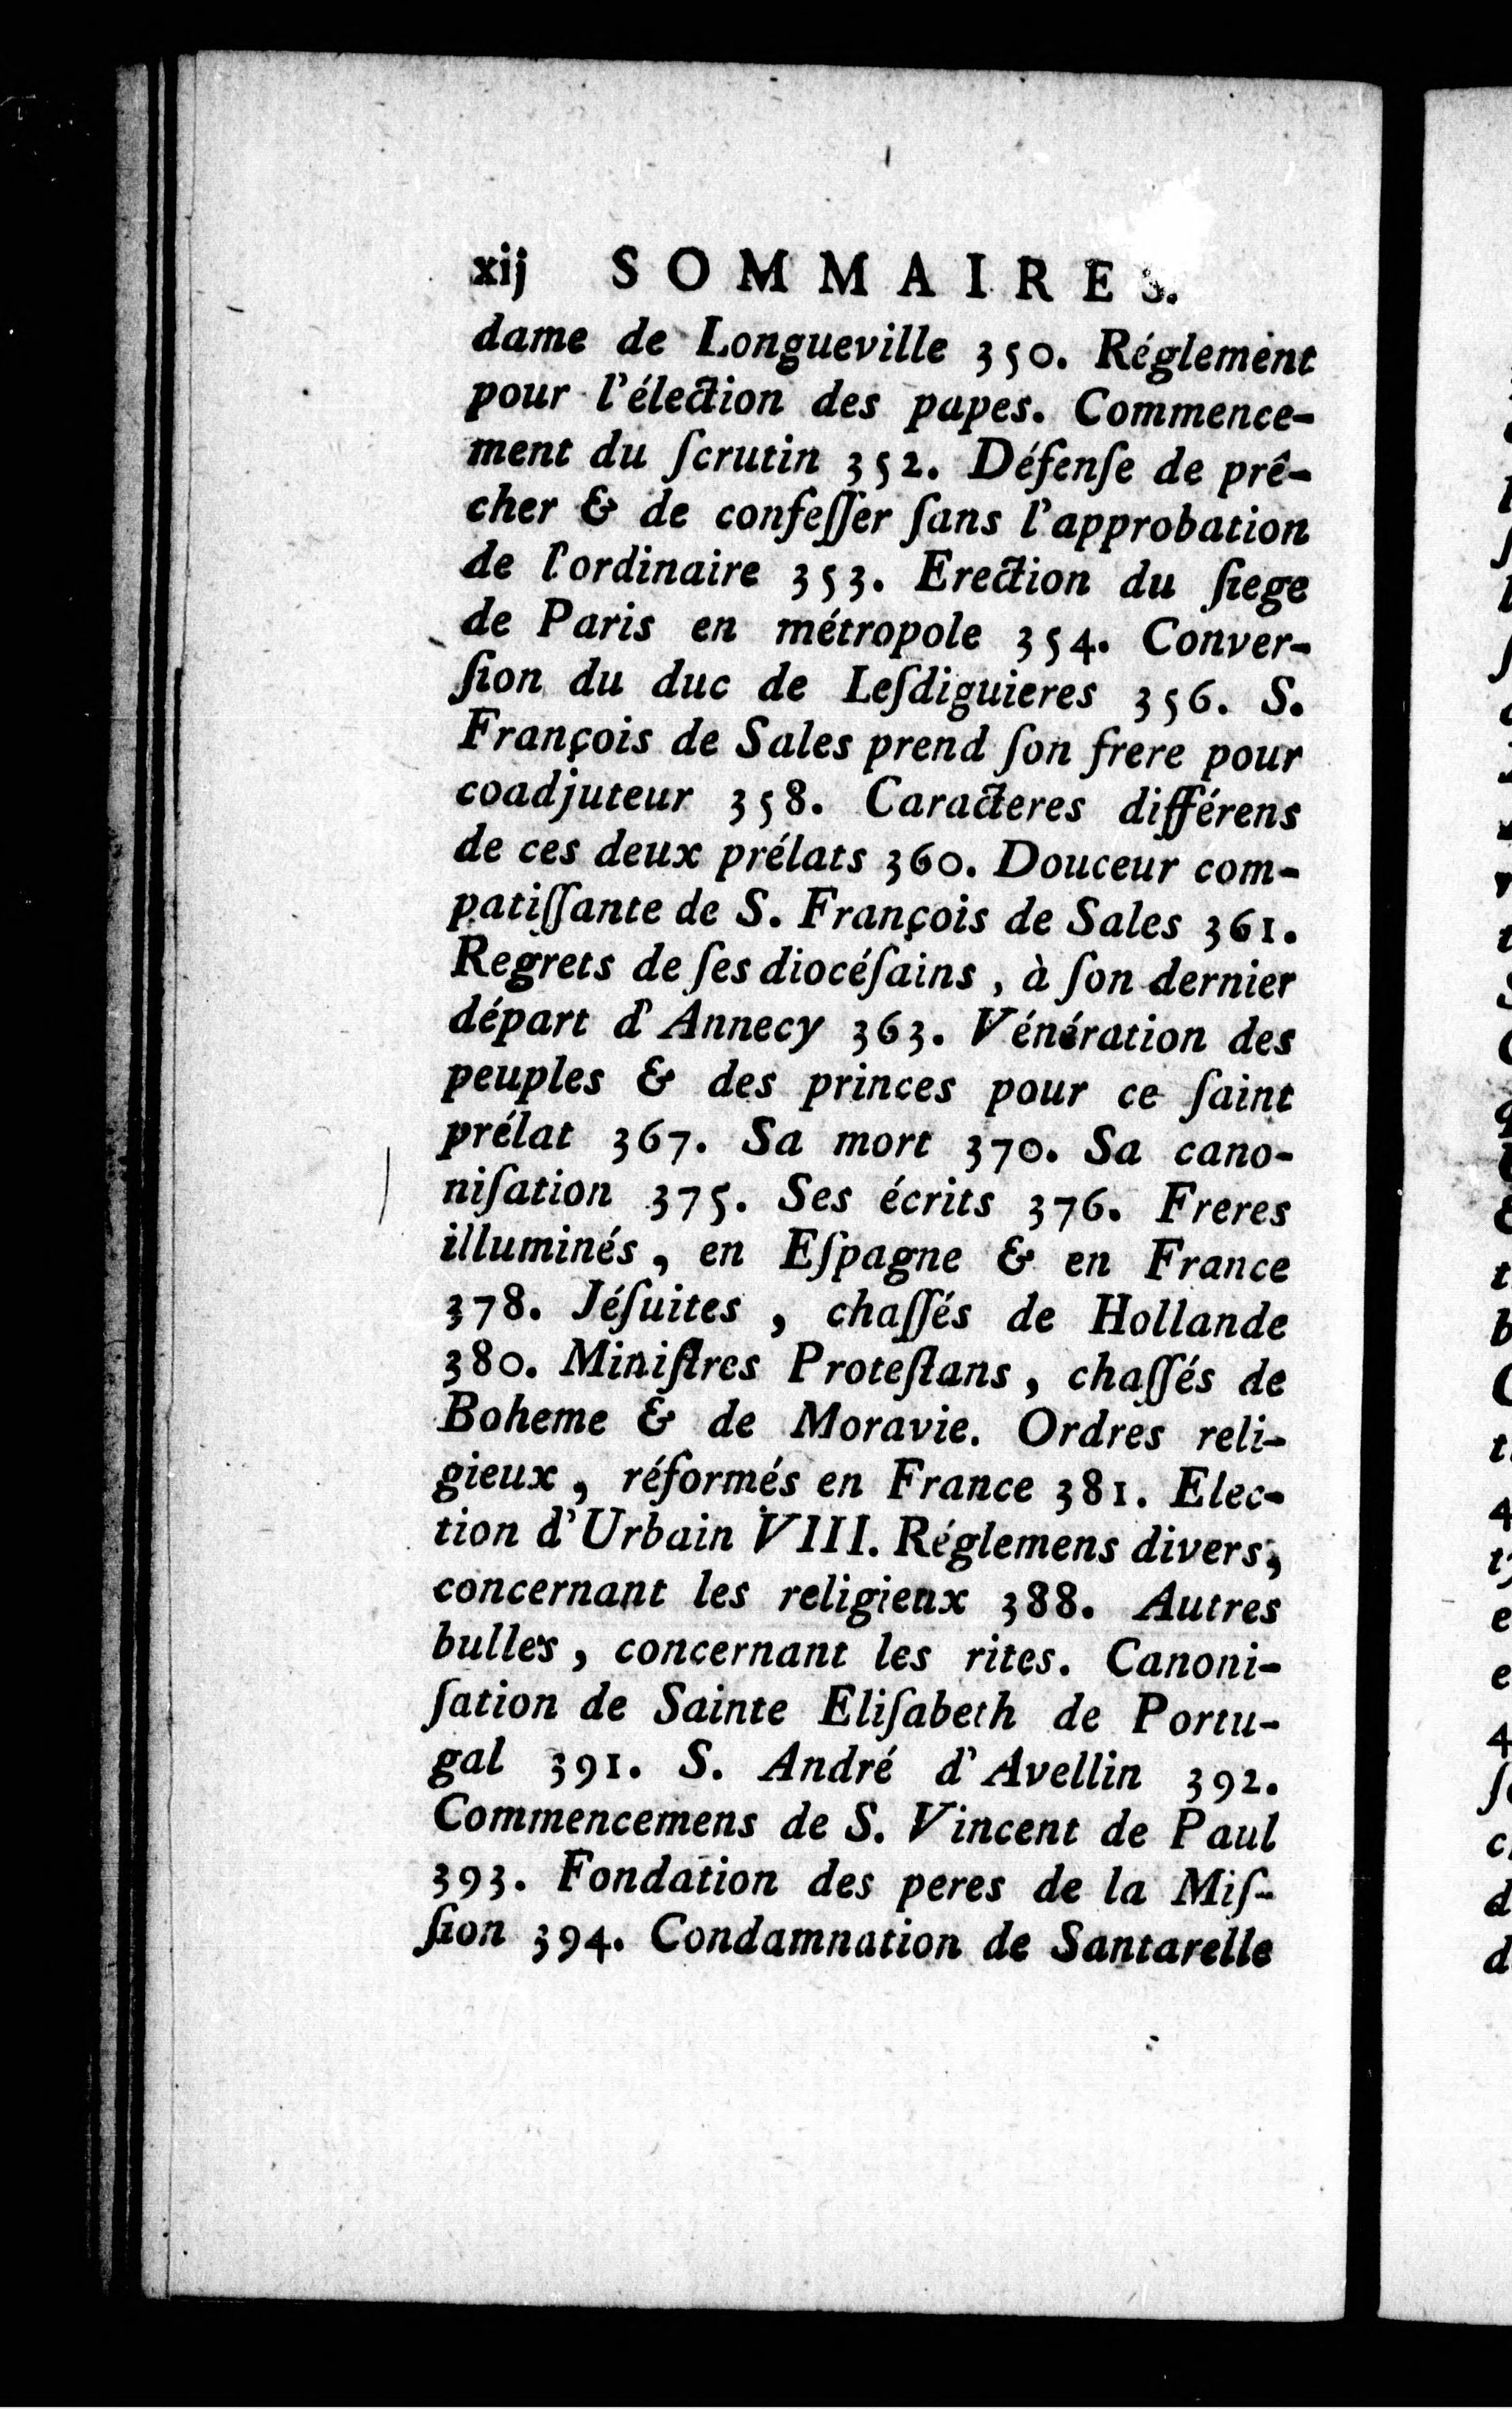 xij SOMMAIRES.
dame de Longueville 350. Réglement
pour l'élection des papes. Commence-
ment du ſcrutin 352. Défenſe de prê-
cher & de confeſſer ſans l'approbation
de l'ordinaire 353. Erection du ſiege
de Paris en métropole 354. Conver-
ſion du duc de Leſdiguieres 356. S.
François de Sales prend ſon frere pour
coadjuteur 358. Caracteres différens
de ces deux prélats 360. Douceur com-
patiſſante de S. François de Sales 361.
Regrets de ſes diocéſains, à ſon dernier
départ d'Annecy 363. Vénération des
peuples & des princes pour ce ſaint
prélat 367. Sa mort 370. Sa cano-
niſation 375. Ses écrits 376. Freres
illuminés, en Eſpagne & en France
378. Jéſuites, chaſſés de Hollande
380. Miniſtres Proteſtans, chaſſés de
Boheme & de Moravie. Ordres reli-
gieux, réformés en France 381. Elec-
tion d'Urbain VIII. Réglemens divers,
concernant les religieux 388. Autres
bulles, concernant les rites. Canoni-
ſation de Sainte Eliſabeth de Portu-
gal 391. S. André d'Avellin 392.
Commencemens de S. Vincent de Paul
393. Fondation des peres de la Miſ-
ſion 394. Condamnation de Santarelle